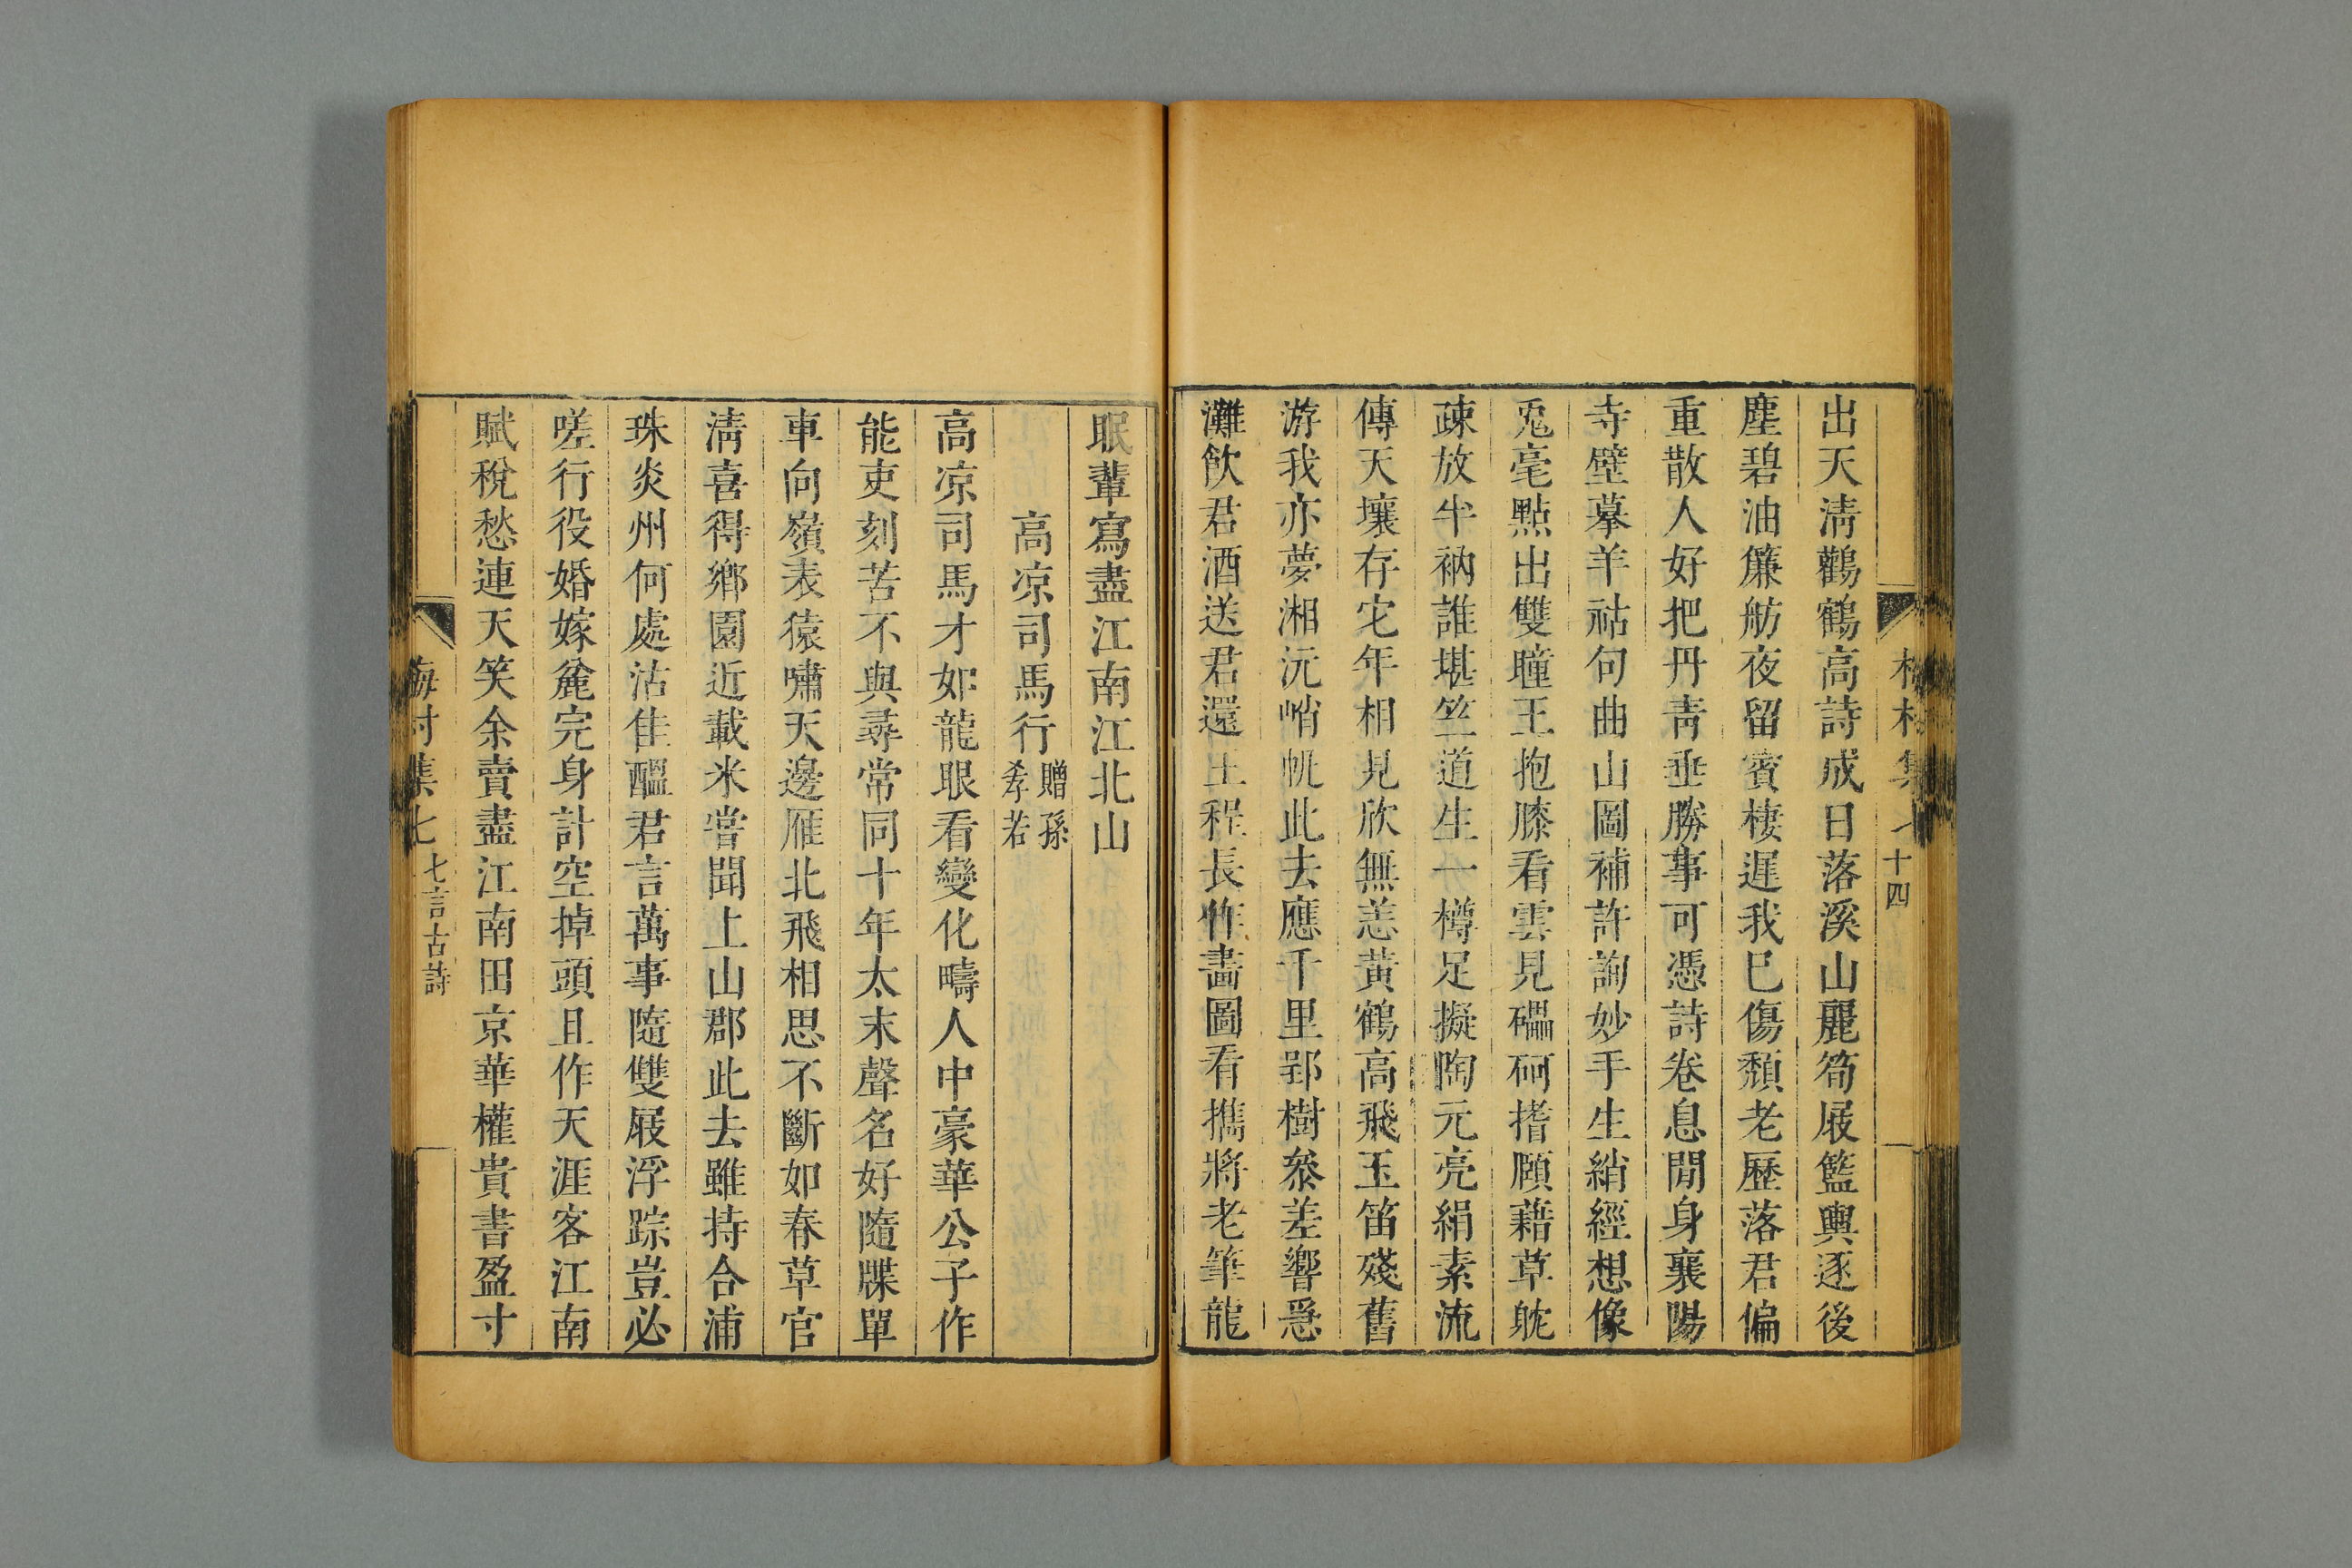 出天清鸛鶴高詩成日落溪山麗筍屐籃輿逐後
塵碧油簾舫夜留賓棲遲我巳傷頽老歷落君偏
重散人好把丹靑垂勝事可憑詩卷息閒身襄陽
寺壁摹羊祜句曲山圖補許詢妙手生綃經想像
兎毫點出雙瞳王抱膝看雲見礧砢搘頤藉草躭
疎放半衲誰堪竺道生一樽足擬陶元亮絹素流
傳天壤存它年相見欣無恙黃鶴高飛玉笛殘舊
游我亦夢湘沅峭帆此去應千里郢樹叅差響惡
灘飮君酒送君還王程長作畵圖看攜將老筆龍
十四
眠輩寫盡江南江北山
高凉司馬行 贈孫孝若
高凉司馬才如龍眼看變化疇人中豪華公子作
能吏刻苦不與尋常同十年太末聲名好隨牒單
車向嶺表猿嘯天邊雁北飛相思不斷如春草官
淸喜得鄉園近載米嘗聞上山郡此去雖持合浦
珠炎州何處沽佳醞君言萬事隨雙屐浮踪豈必
嗟行役婚嫁麄完身計空掉頭且作天涯客江南
賦稅愁連天笑余賣盡江南田京華權貴書盈寸
梅村集七 七言古詩